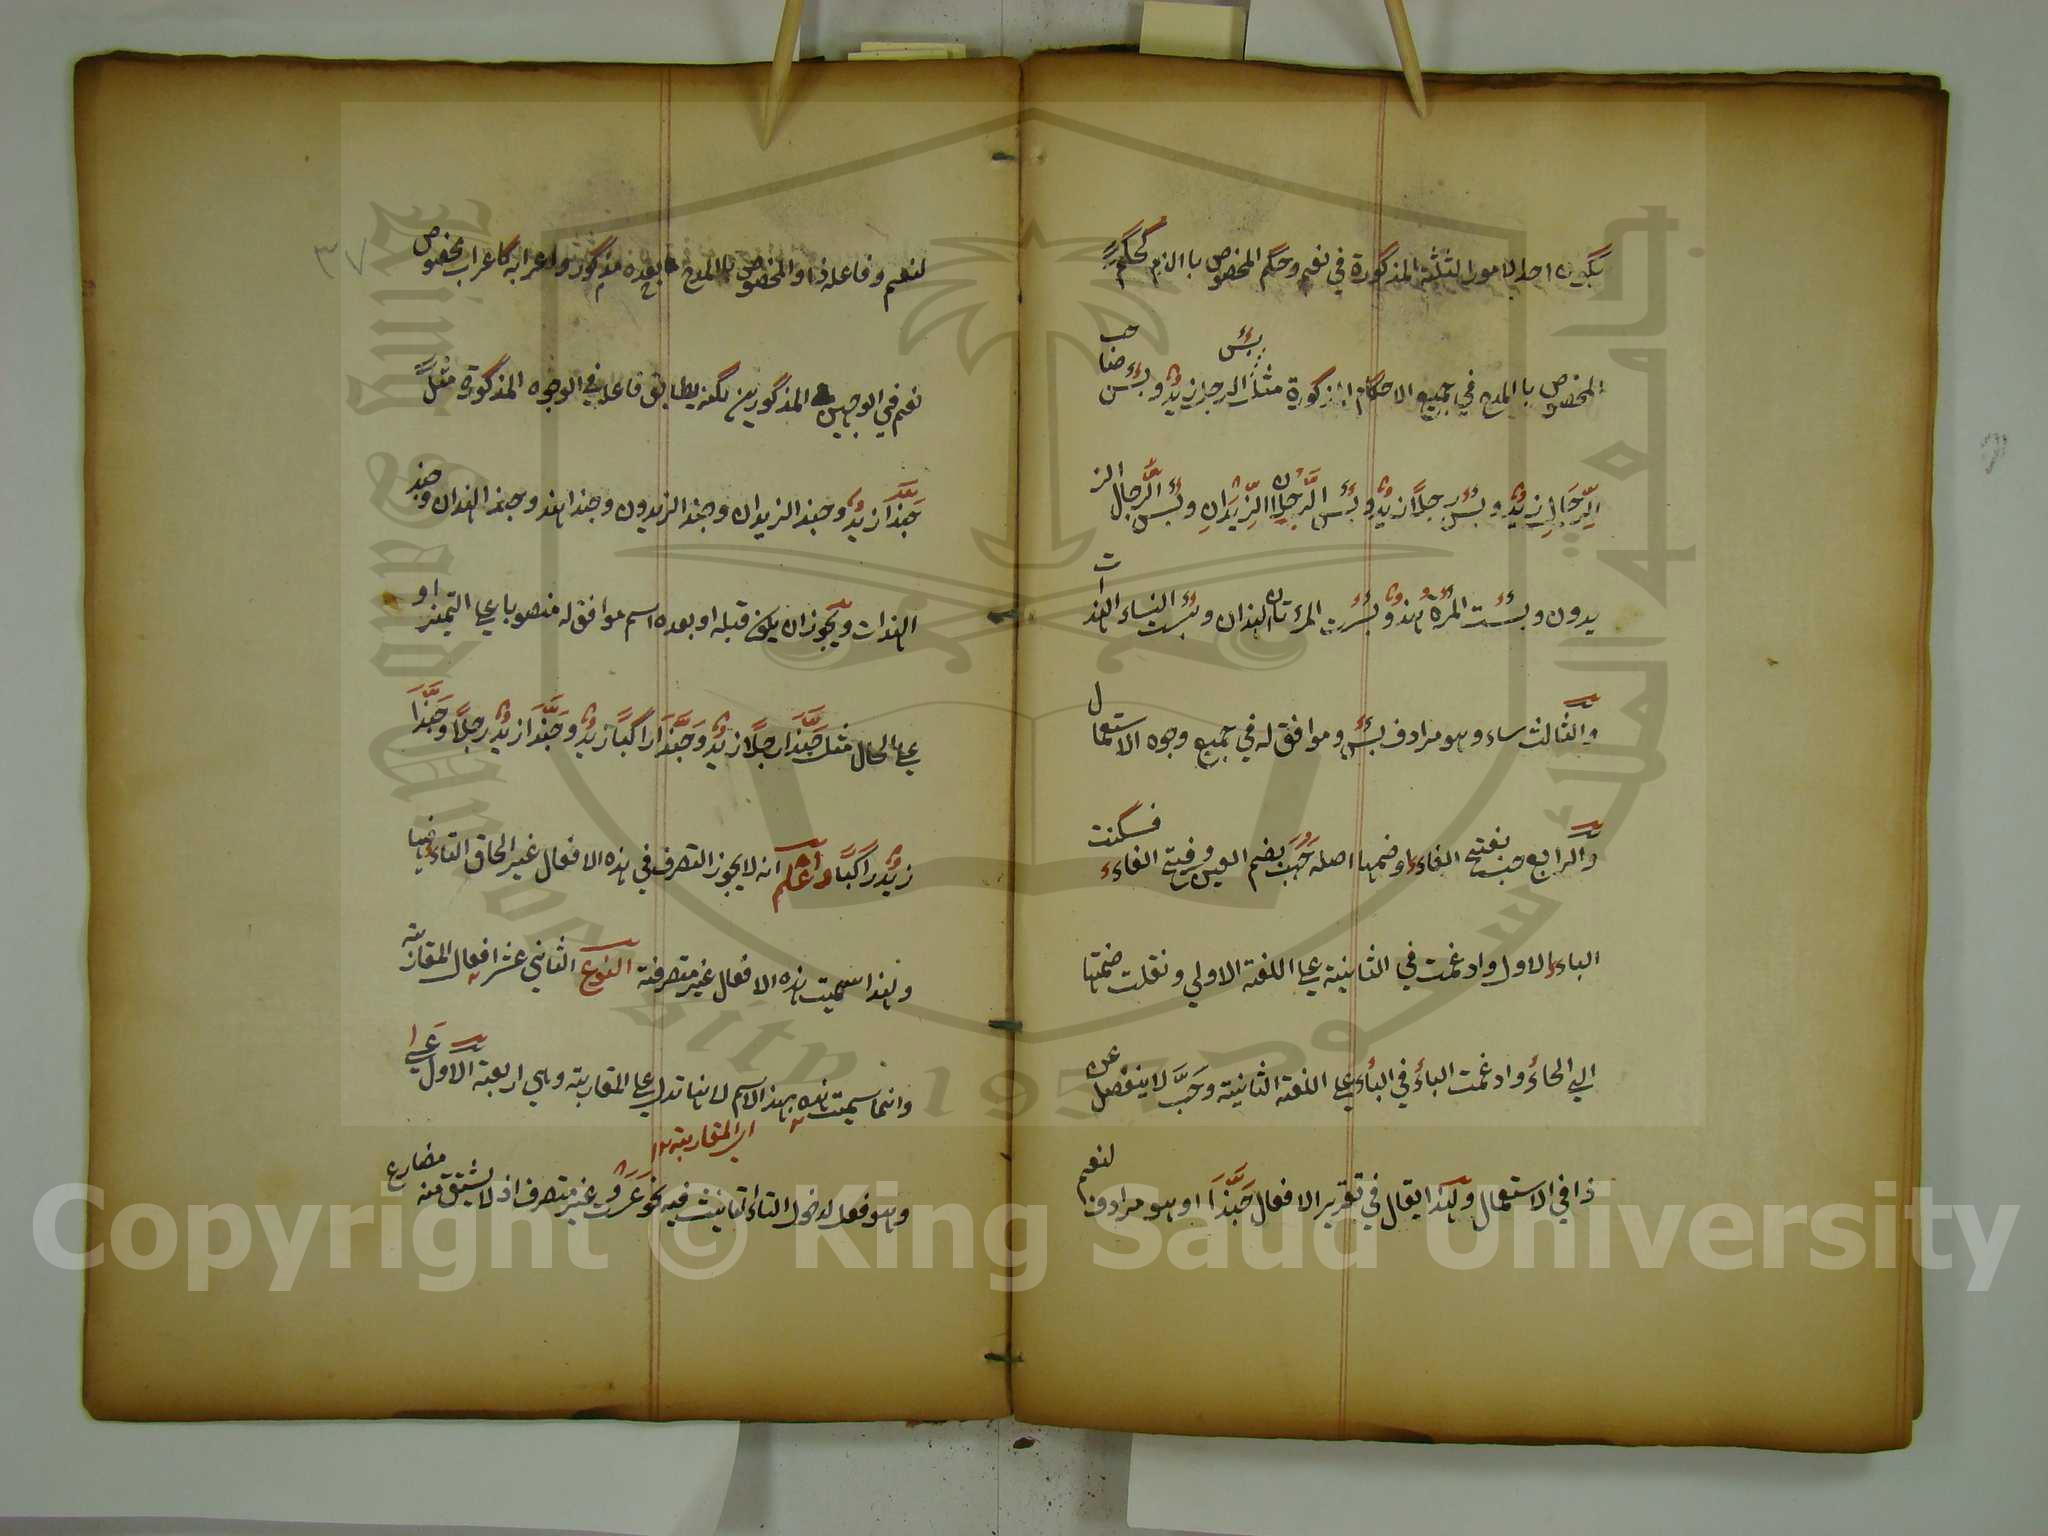 يكون احد الامور الثلثة المذكورة في نعم وحكم المخصوص بالذم كحكم
المخصوص بالمدح في جميع الاحكام المذكورة مثل بئس الرجل زيد وبئس صاحب
الرجال زيد وبئس رجلا زيد وبئس الرجلان الزيدان وبئس الرجال الز
يدون وبئست المرءة هند وبئست المرءتان الهندان وبئست النساء الهندات
والثالث ساء وهو مرادف بئس وموافق له في جميع وجوه الاستعمال
والرابع حب بفتح الفاء او ضمها اصله حبب بضم العين وفتح الفاء فسكنت
الباء الاول وادغمت في الثانية على اللغة الاولي ونقلت ضمتها
الي الحاء وادغمت الباء في الباء على اللغة الثانية وحب لا ينفصل عن
ذا في الاستعمال ولهذا يقال في تقرير الافعال حبذا وهو مرادف لنعم
٣٧
لنعم وفاعله ذا والمخصوص بالمدح بعده مذكور واعرابه كاعراب مخصوص
نعم في الوجهين المذكورين لكنه يطابق فاعله في الوجوه المذكورة مثل
حبذا زيد وحبذا الزيدان وحبذا الزيدون وحبذا هند وحبذا الهندان وحبذ
الهندات ويجوز ان يكون قبله او بعده اسم موافق له منصوبا على التميز او
على الحال مثل حبذا رجلا زيد وحبذا راكبا زيد وحبذا زيد رجلا وحبذا
زيد راكبا واعلم انه لا يجوز التصرف في هذه الافعال غير الحاق التاء فيها
ولهذا سميت هذه الافعال غير متصرفة النوع الثاني عشر افعال المقاربة
وانما سميت هذه بهذا الاسم لانها تدل على المقاربة وهي اربعة الاول عسى
اي المقاربة ١٢
وهو فعل لدخول التاء التانيث فيه نحو عست وغير متصرف اذ لا يشتق منه مضارع
جامعة الملك سعود
King Saud University
1957
Copyright © King Saud University